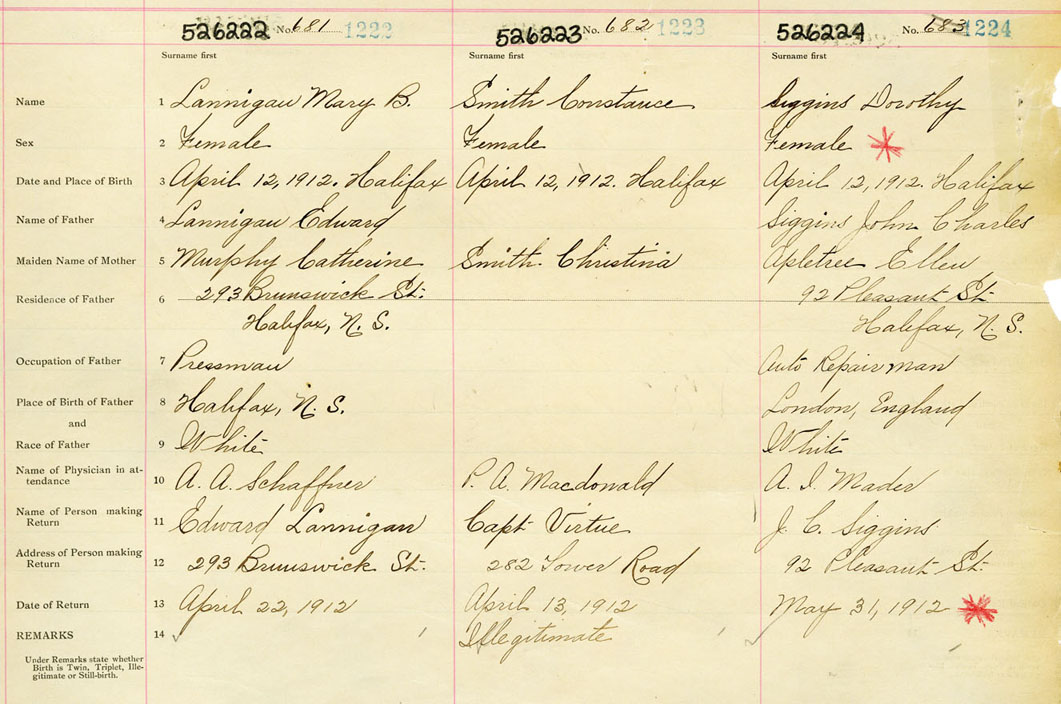 526222 No. 681 1222 526223 No. 682 1223 526224 No. 683 1224
Surname first Surname first Surname first
Name 1 Lannigan Mary B. Smith Constance Siggins Dorothy
Sex 2 Female Female Female
Date and Place of Birth 3 April 12, 1912. Halifax April 12, 1912. Halifax April 12, 1912. Halifax
Name of Father 4 Lannigan Edward Siggins John Charles
Maiden Name of Mother 5 Murphy Catherine Smith Christina Apletree Ellen
Residence of Father 6 293 Brunswick St. 92 Pleasant St.
Halifax, N. S. Halifax, N. S.
Occupation of Father 7 Pressman Auto Repair man
Place of Birth of Father 8 Halifax, N. S. London, England
and
Race of Father 9 White White
Name of Physician in at-
tendance 10 A. A. Schaffner P. A. Macdonald A. I. Mader
Name of Person making
Return 11 Edward Lannigan Capt Virtue J. C. Siggins
Address of Person making
Return 12 293 Brunswick St. 282 Tower Road 92 Pleasant St.
Date of Return 13 April 22, 1912 April 13, 1912 May 31, 1912
REMARKS 14 Illegitimate
Under Remarks state whether
Birth is Twin, Triplet, Ille-
gitimate or Still-birth.